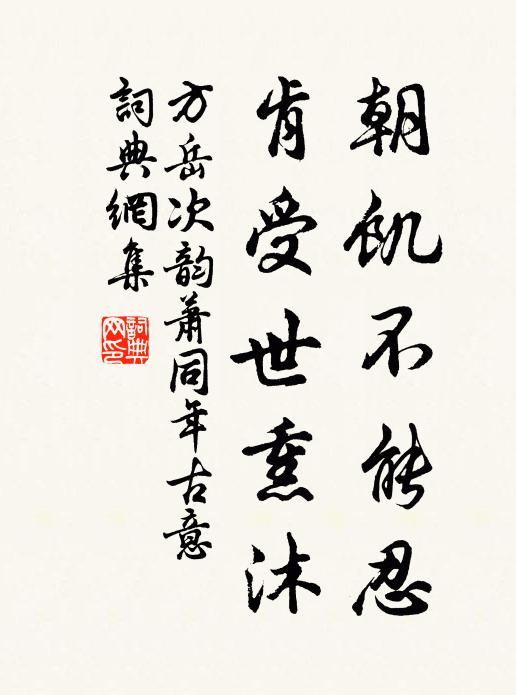 朝飢不能忍
肯受世熏沐
方岳次韵蕭同年古意
詞典網集
詞典網印